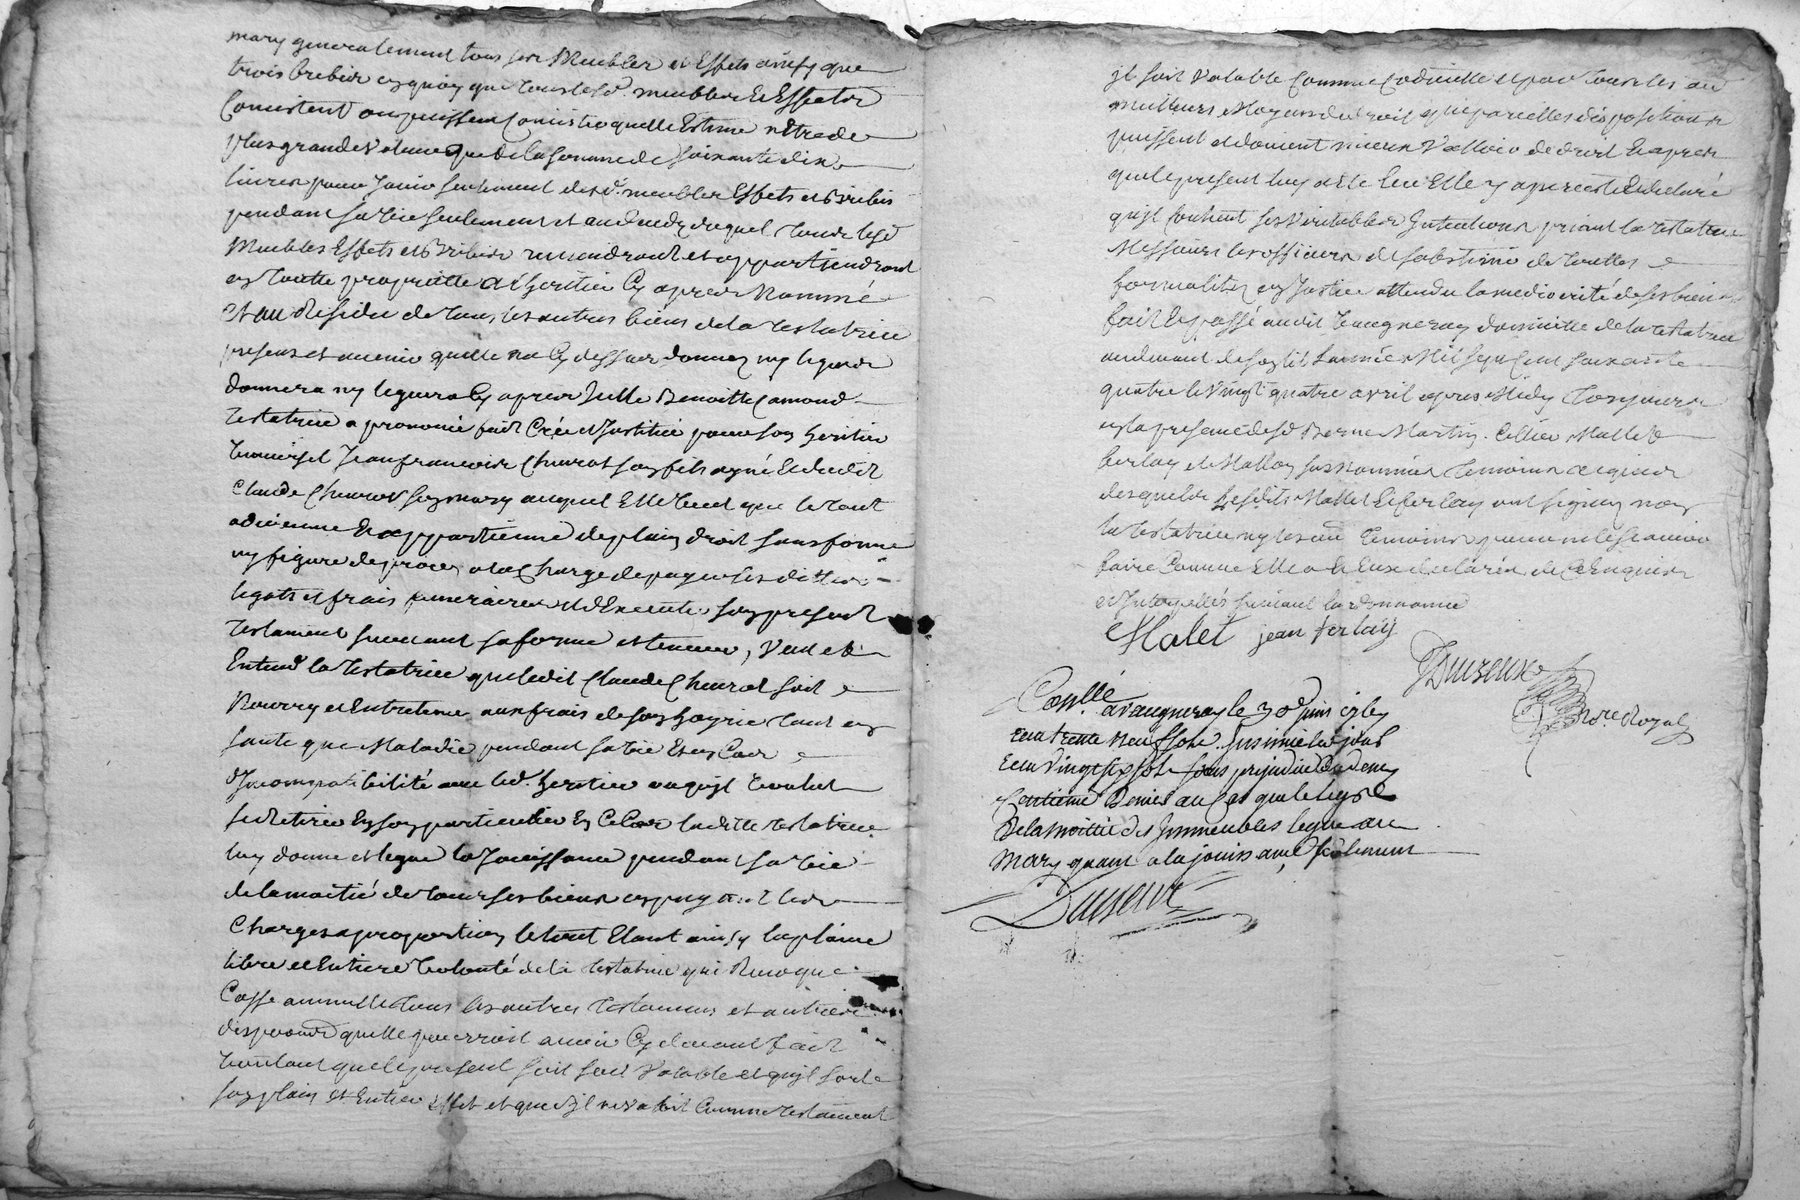 mary generalement tous ses Meubles et Effets ainsy que
trois brebis en quoy que tous lesd. meubles Et Effets
Consistent ou puissent Consister quelle Estime n'Etre de
plus grande Valeur que de la somme de soixante dix
livres pour Jouir seulement desd. meubles Effets et Brebis
pendant sa vie seulement et au deceds duquel tous lesd
Meubles Effets et Brebis reviendront et appartiendront
en toutte propriette a l'heritier Cy apres Nommé
Et au Residu de tous les autres biens de la testatrice
presens et avenir quelle na Cy dessus donnez ny leguez
donnera ny leguera Cy apres Icelle Benoitte Camond
testatrice a nommé fait Créé et Institué pour son heritier
universel Jean francois Chuzot son fils ayné Et dudit
Claude Chuzot son mary auquel Elle veut que le tout
advienne Et appartienne de plain droit sans forme
ny figure de proces a la Charge de payer ses dittes
legats et frais funeraires et d'Executer son present
testament suivant sa forme et teneur, Veut et
Entend la testatrice que ledit Claude Chuzot soit
Nourry et Entretenu aux frais de son hoyrie tant en
sante que Maladie pendant sa vie Et en Cas
d'Incompatibilité avec led. heritier ou qu'il voulut
se retirer En son particulier En Ce Cas laditte testatrice
luy donne et legue la Jouissance pendant sa vie
de la moitié de tous ses biens en payant les
Charges a proportion le tout Etant ainsy la plaine
libre et Entiere volonté de la testatrice qui Revoque
Casse annulle tous les autres testamens et autres
disposions quelle pourroit avoir Cy devant fait
voulant que le present soit seul Valable et qu'il sorte
son plain Et Entier Effet et que s'il ne valoit Comme testament
jl soit Valable Comme Codicille et par tous les au
meilleurs Moyens de droit que pareilles dispositions
puissent et doivent mieux Valloir de droit Et apres
que le present luy a ete leu Elle y a persisté Et declaré
qu'jl Contient ses Veritables Intentions priant la testatrice
Messieurs les officiers de sabstenir de touttes
formalitez en Justice attendu la mediocrité de ses biens
fait Et passé audit Vaugneray domicille de la testatrice
au devant de son lit L'année Mil sept Cent soixante
quatre le Vingt quatre avril apres Midy toujours
en la presence desd Berne Martin Cellier Mallet
ferlay et Mathey susnommés temoins requis
desquels lesdits Mallet Et ferlay ont signez non
la testatrice ny les au temoins pour ne le scavoir
faire Comme Elle et Eux declarés de Ce Enquis
et Interpellés suivant lordonnance
Malet jean ferlay
Duizeux
Nore Royal
Conllé a vaugneray le 30e juin 1764
recu trente neuf sols. Insinué led jour
recu vingt six sols sans prejudice du demy
Centieme Denier au Cas que le legs
de la moitié des Immeubles legué au
Mary quant a la jouissance seulement
Duizeux